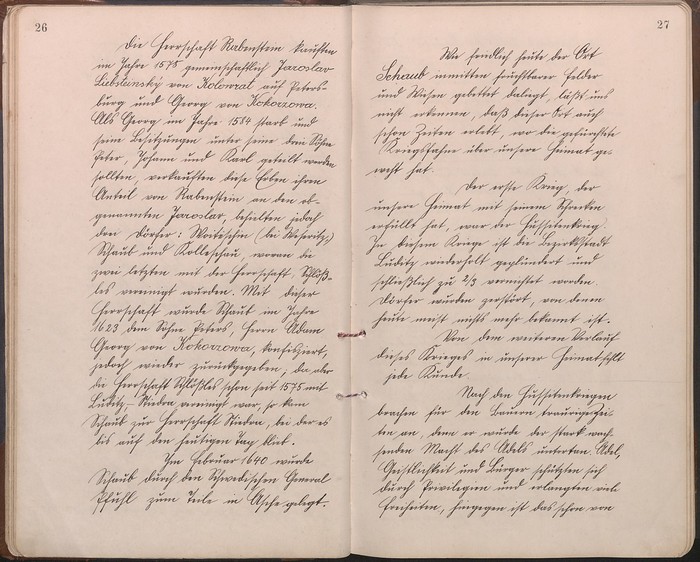 26
Die Herrschaft Rabenstein kauften
im Jahre 1575 gemeinschaftlich Jaroslav
Liebsteinský von Kolowrat auf Peters-
burg und Georg von Kokorzowa.
Als Georg im Jahre 1584 starb und
seine Besitzungen unter seine drei Söhne
Peter, Johann und Karl geteilt werden
sollten, verkauften diese Erben ihren
Anteil von Rabenstein an den ob-
genannten Jaroslav, behielten jedoch
den Dörfer: Woiteschin (bei Weseritz,)
Schaub und Kolleschau, wovon die
zwei letzten mit der Herrschaft Schlöß-
les vereinigt wurden. Mit dieser
Herrschaft wurde Schaub im Jahre
1623 dem Sohne Peters, Herrn Adam
Georg von Kokorzowa, konfisziert,
jedoch wieder zurückgegeben; da aber
die Herrschaft Schlößles schon seit 1575 mit
Luditz-Stiedra vereinigt war, so kam
Schaub zur Herrschaft Stiedra, bei der es
bis auf den heutigen Tag blieb.
Im Februar 1640 wurde
Schaub durch den Schwedischen General
Pfuhl zum Teile in Asche gelegt.
27
Wie friedlich heute der Ort
Schaub inmitten fruchtbarer Felder
und Wiesen gebettet daliegt, läßt uns
nicht erkennen, daß dieser Ort auch
schon Zeiten erlebt, wo die gefürchtete
Kriegsfahne über unsere Heimat ge-
weht hat.
Der erste Krieg, der
unsere Heimat mit seinem Schrecken
erfüllt hat, war der Hussitenkrieg.
In diesem Kriege ist die Bezirksstadt
Luditz wiederholt geplündert und
schließlich zu 2/3 vernichtet worden.
Dörfer wurden zerstört, von denen
heute meist nichts mehr bekannt ist.
Von dem weiteren Verlauf
dieses Krieges in unserer Heimat fehlt
jede Kunde.
Nach den Hussitenkriegen
brachen für den Bauern traurige Zei-
ten an, denn er wurde der stark wach-
senden Macht des Adels untertan. Adel,
Geistlichkeit und Bürger schützten sich
durch Privilegien und erlangten viele
Freiheiten, hingegen ist das schon von